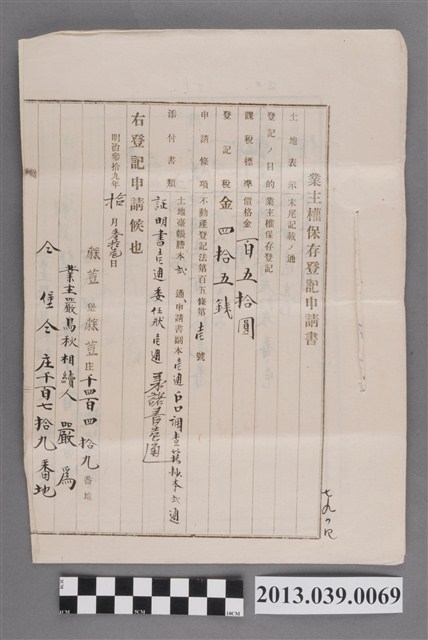 業主權保存登記申請書
土地表示末尾記載ノ通
登記ノ目的 業主權保存登記
課稅標準 價格金 百五拾圓
登記稅 金 四拾五錢
申請條項 不動產登記法第百五條第壱號
添付書類 土地臺帳謄本弍通 申請書副本壱通 戶口調查簿抄本弍通
証明書壱通 委任狀壱通
右登記申請候也
明治參拾九年 拾月 日
艋萱堡艋萱庄千四百四拾九番地
業主嚴萬秋相續人 嚴爲
仝堡仝庄千百七拾九番地
2013.039.0069